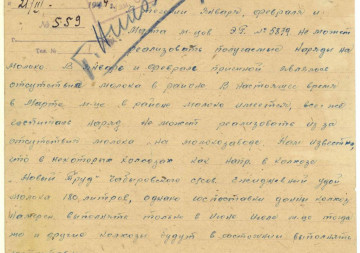 21/III 194
№ 559
Января, февраля и
Марта м-цев Э.Г. № 5839 не может
реализовать получаемые наряды на
молоко. В январе и феврале причиной являлось
отсутствие молока в районе. В настоящее время
в Марте м-це в районе молоко имеется, все же
госпиталь наряд не может реализовать из за
отсутствия молока на молокозаводе. Нам известно,
что в некоторых колхозах как напр. в колхозе
„Новый Труд" сов. ежедневный удой
молока 180 литров, однако госпоставки данный колхоз
выполнять только в Июне Июле м-це тогда
же и другие колхозы будут в состоянии выполнять